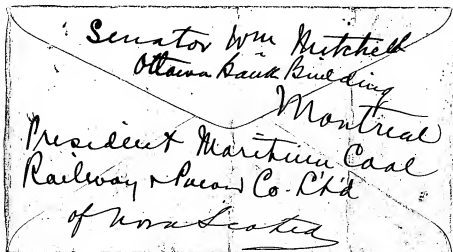 Senator Wm Mitchell
Ottawa Bank Building
Montreal
President Maritime Coal
Railway & Power Co. L't'd
of Nova Scotia